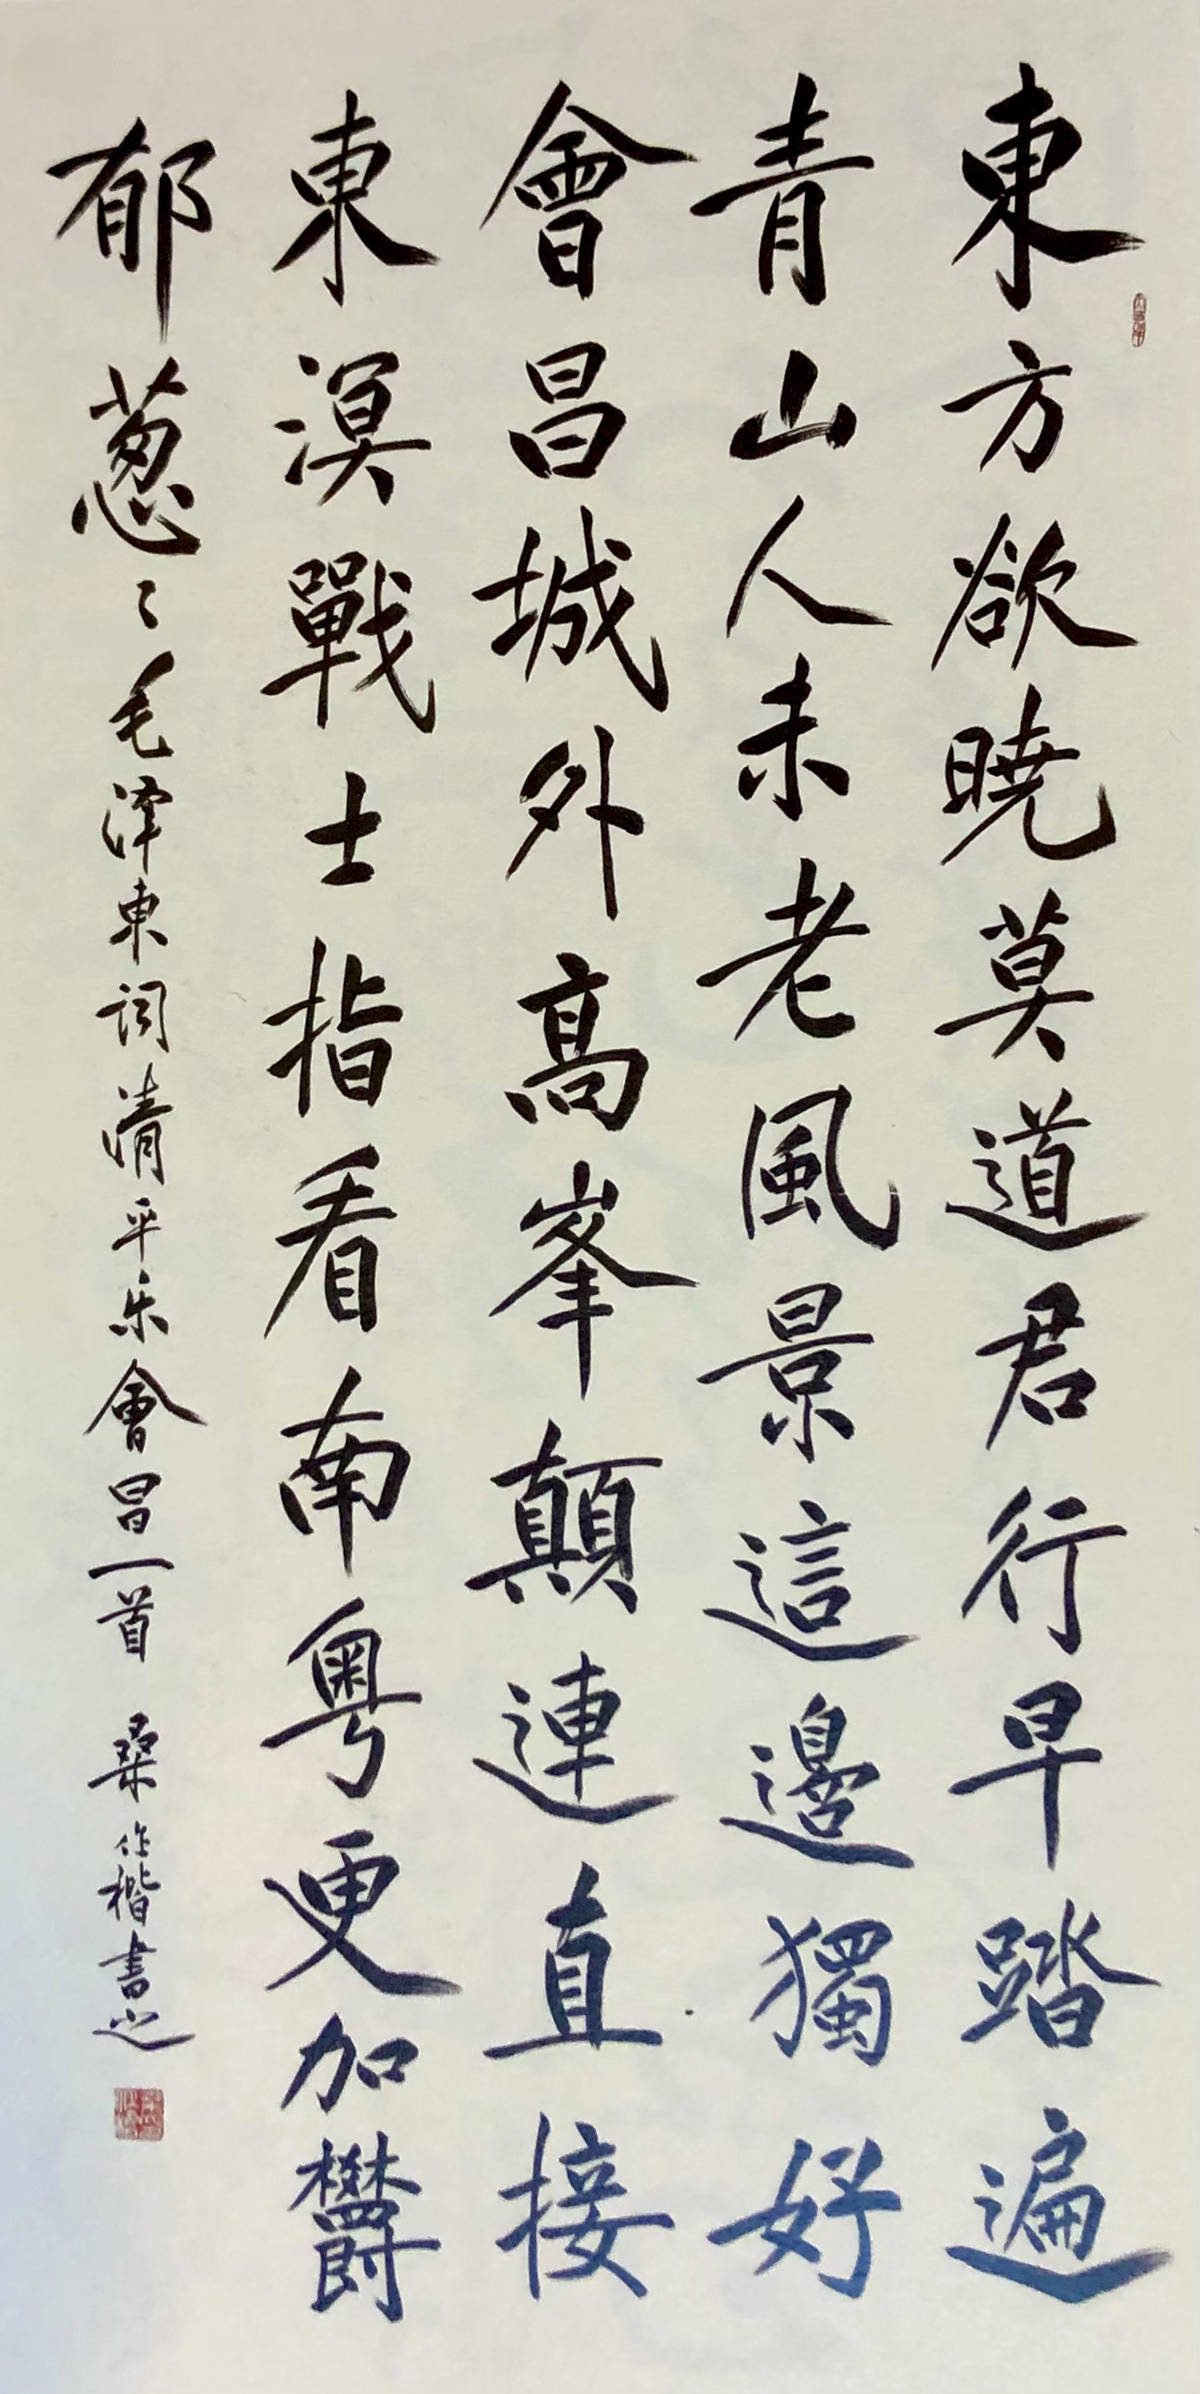 東方欲曉莫道君行早踏遍
青山人未老風景這邊獨好
會昌城外高峯顛連直接
東溟戰士指看南粤更加鬱
郁葱〻毛泽東词清平乐會昌一首 桑作楷書